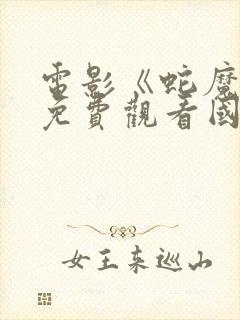 電影《蛇魔
免費觀看國
女王来巡山